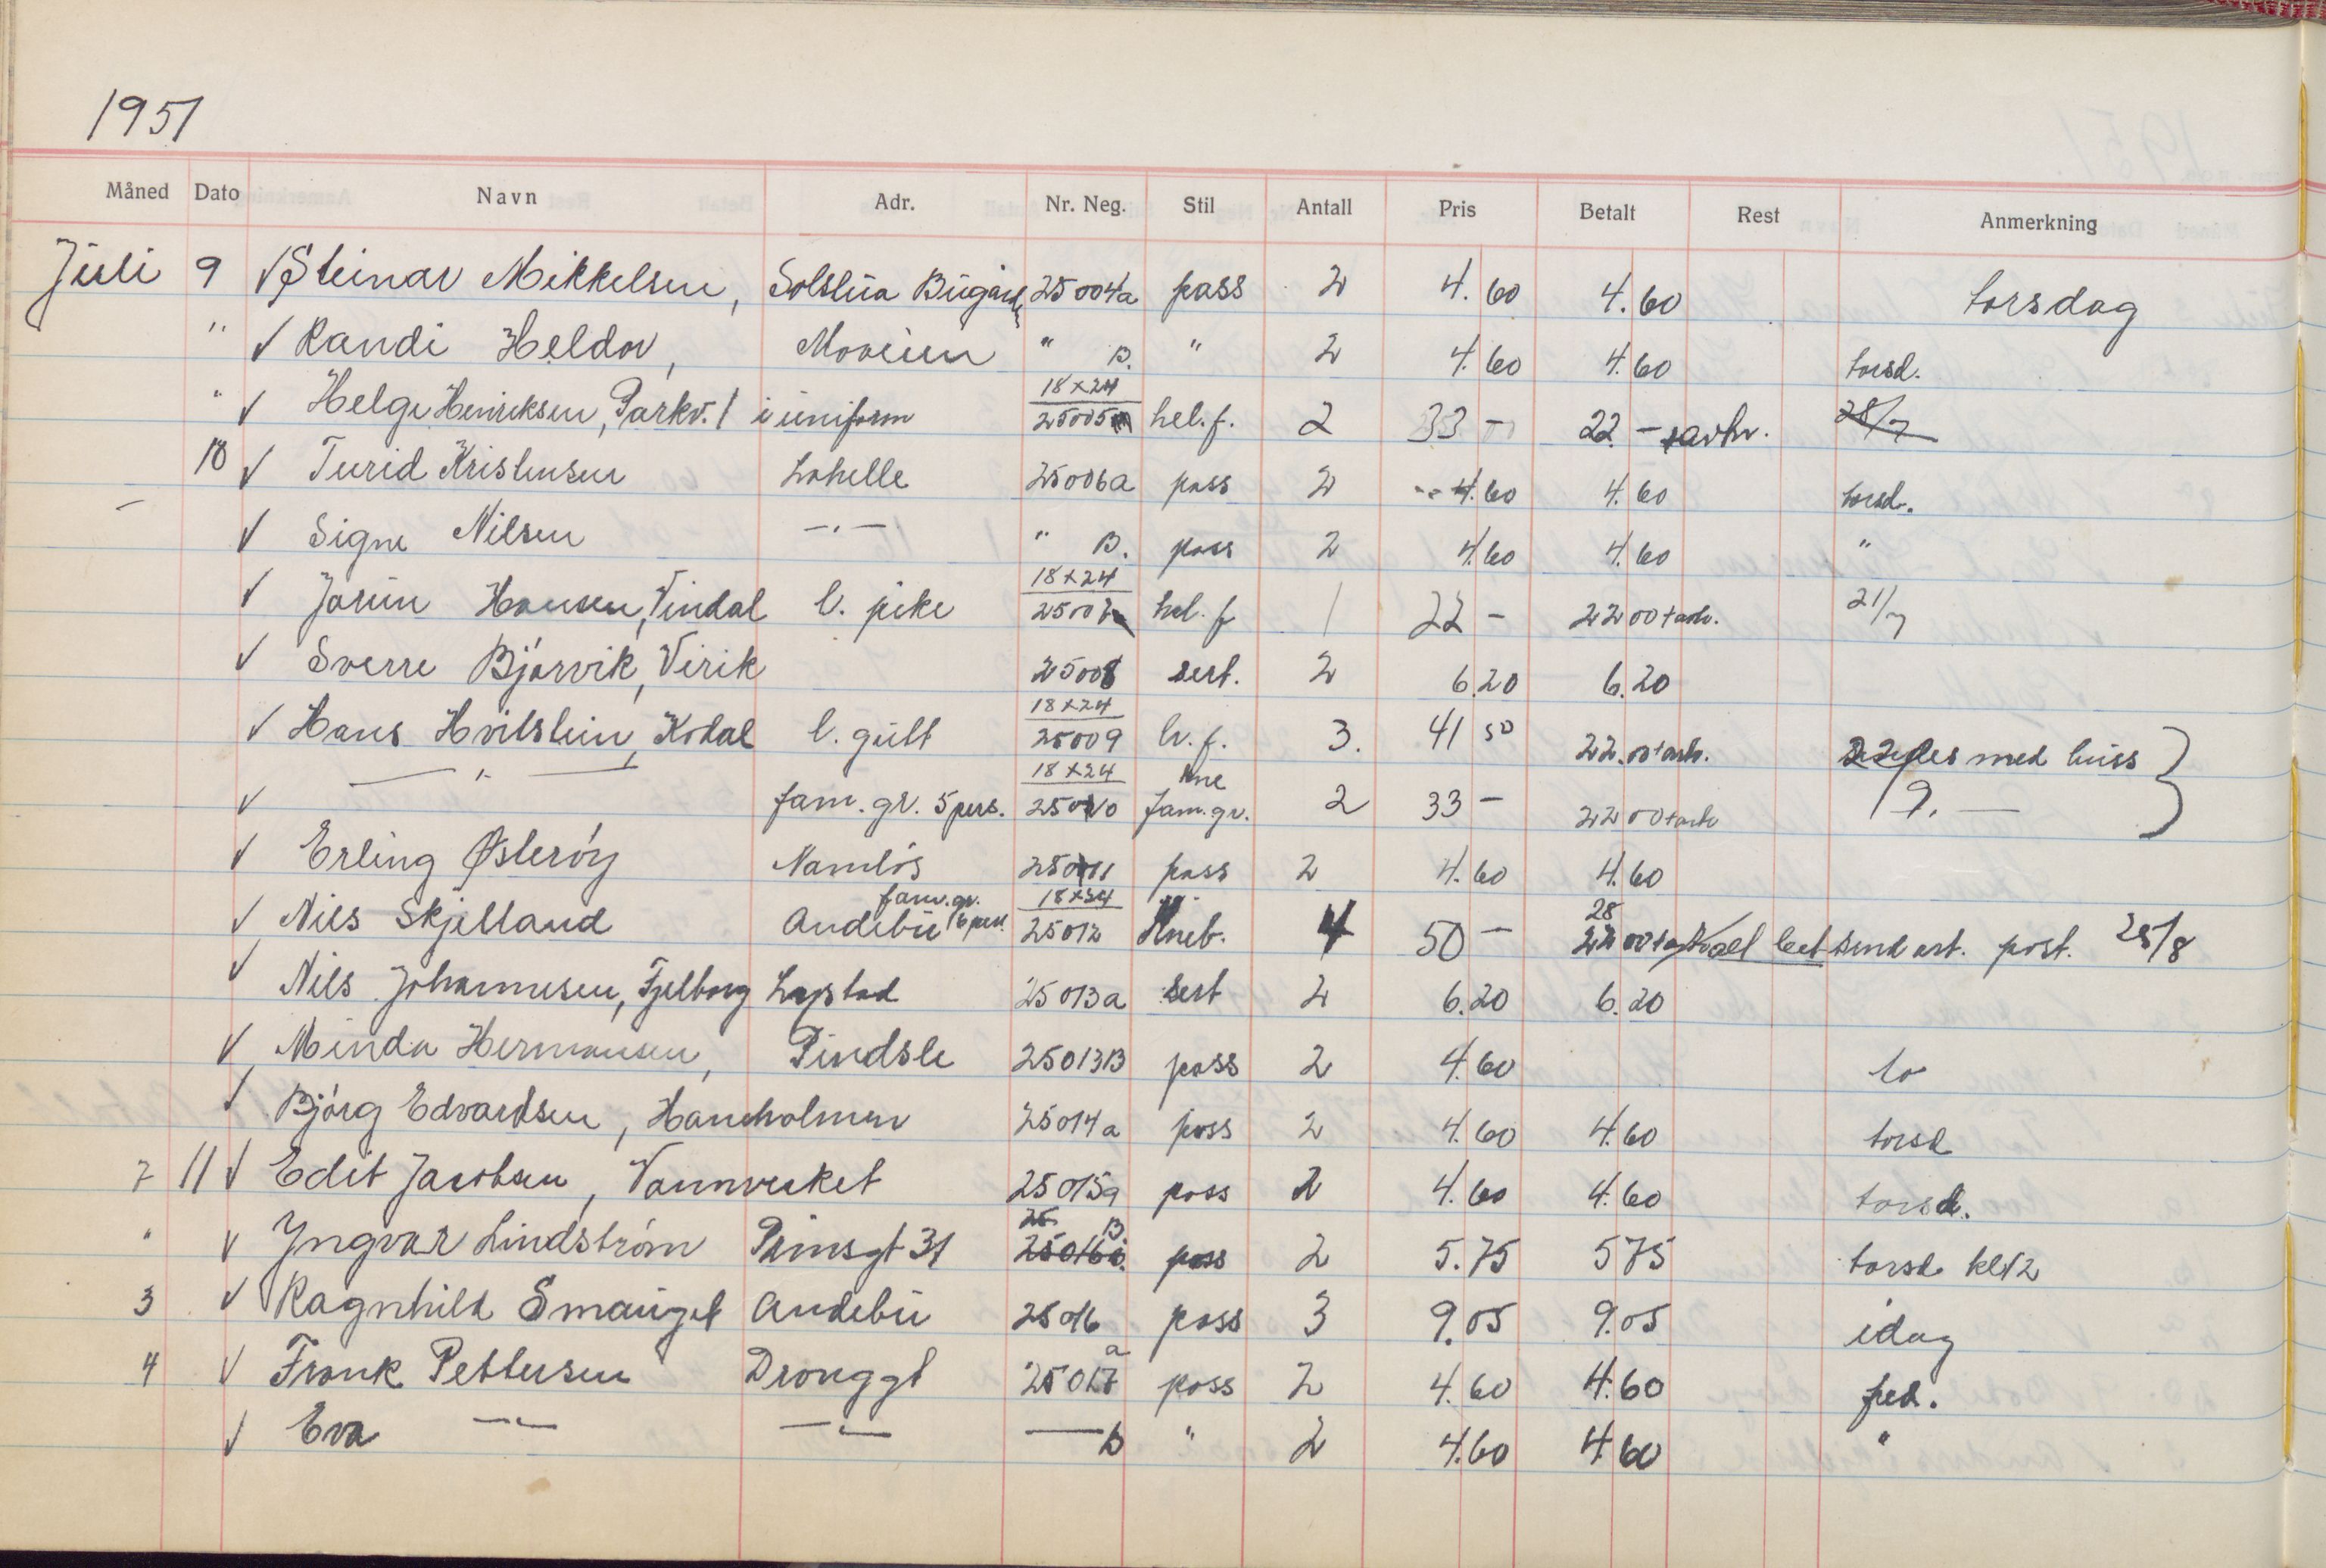 1951
Måned Dato Navn Adr. Nr. Neg. Stil Antall Pris Betalt Rest Anmerkning
Juli 9 √ Steinar Mikkelsen, Solslia 25004a pass 2 4.60 4.60 torsdag
" √ Randi Heldor, Moveien " B. " 2 4.60 4.60 torsd.
" √ Helge Henriksen, Parkv. 1 i uniform 18x24 25005 hel.f. 2 33 - 22 - + arb. 28/7
10 √ Turid Kristensen Lahelle 25006a pass 2 4.60 4.60 torsd.
√ Signe Nilsen -"- " B. pass 2 4.60 4.60 "
√ Jorun Hansen, Vindal l. pike 18x24 25007 hel. f 1 22 - 22 00 + arb. 21/7
√ Sverre Bjørvik, Virik 25008 sert. 2 6.20 6.20
√ Hans Hvitstein, Kodal l. gutt 18x24 25009 h. f. 3. 41 50 22.00 + arb. med buss
√ -"- fam. gr. 5 pers. 18x24 25010 kne fam.gr. 2 33 - 22 00 + arb 9. -
√ Erling Østerøy Namløs 25011 pass 2 4.60 4.60
√ Nils Skjelland Andebu fam.gr. 6 pers. 18x24 25012 kneb. 4 50 - 28 22 00 + alt bet send art. post. 25/8
√ Nils Johannesen, Fjellborg Løystad 25013a sert 2 6.20 6.20
√ Minda Hermansen, Pindsle 25013B pass 2 4.60 to
√ Bjørg Edvardsen, Haneholmen 25014a pass 2 4.60 4.60 torsd
7 11 √ Edit Jacobsen, Vannverket 25015a pass 2 4.60 4.60 torsd.
" √ Yngvar Lindstrøm Prinsgt 31 25 B. 25016a. pass 2 5.75 575 torsd kl 12
3 √ Ragnhild Smauget Andebu 25016 pass 3 9.05 9.05 idag
4 √ Frank Pettersen Dronggt 25017a pass 2 4.60 4.60 fred.
√ Eva -"- -"- - b " 2 4.60 4.60 "